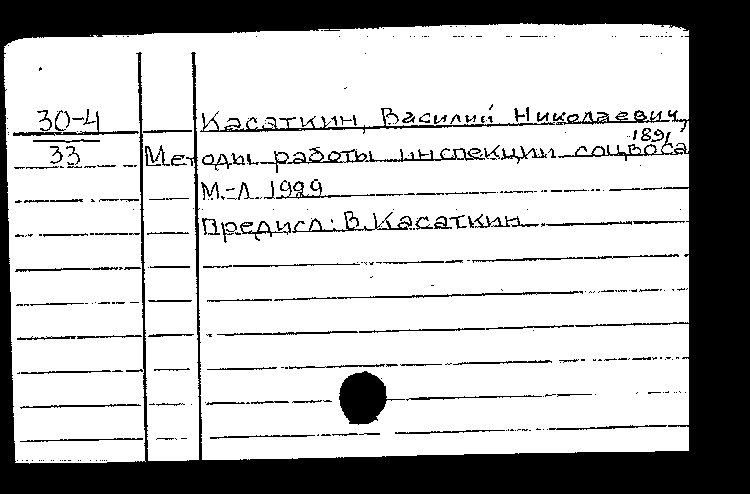 30-4
33
Касаткин, Василий Николаевич,
1891
Методы работы инспекции соцвоса
М.-Л 1929
Предисл: В. Касаткин